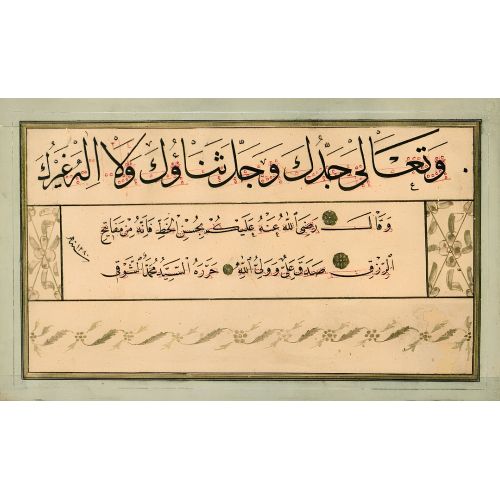 وَتَعَالَى جَدُّكَ وَجَلَّ ثَنَاؤُكَ وَلَا اِلٰهَ غَيْرُكَ
وَقَالَ رَضِيَ اللّٰهُ عَنْهُ عَلَيْكُمْ بِحُسْنِ الْخَطِّ فَاِنَّهُ مِنْ مَفَاتِيحِ
الرِّزْقِ صَدَقَ عَلِيٌّ وَوَلِيُّ اللّٰهِ حَرَّرَهُ السَّيِّدُ مُحَمَّدٌ الشَّوْقِي